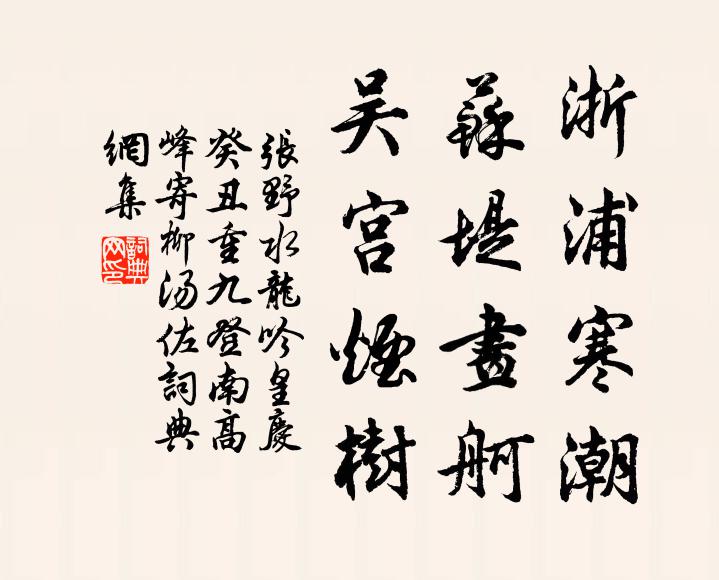 浙浦寒潮
蘇堤畫舸
吴宫煙樹
張野水龍吟皇慶
癸丑重九登南高
峰寄柳湯佐詞典
網集
詞典
网印